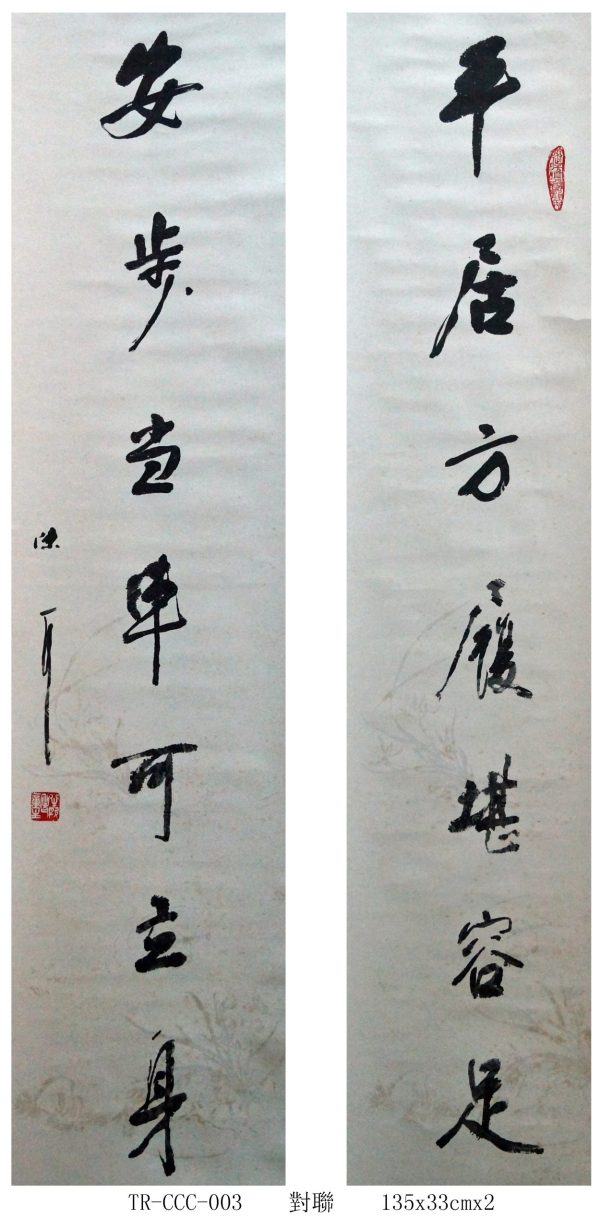 平居方履堪容足
安步当車可立身
TR-CCC-003 對聯 135x33cmx2